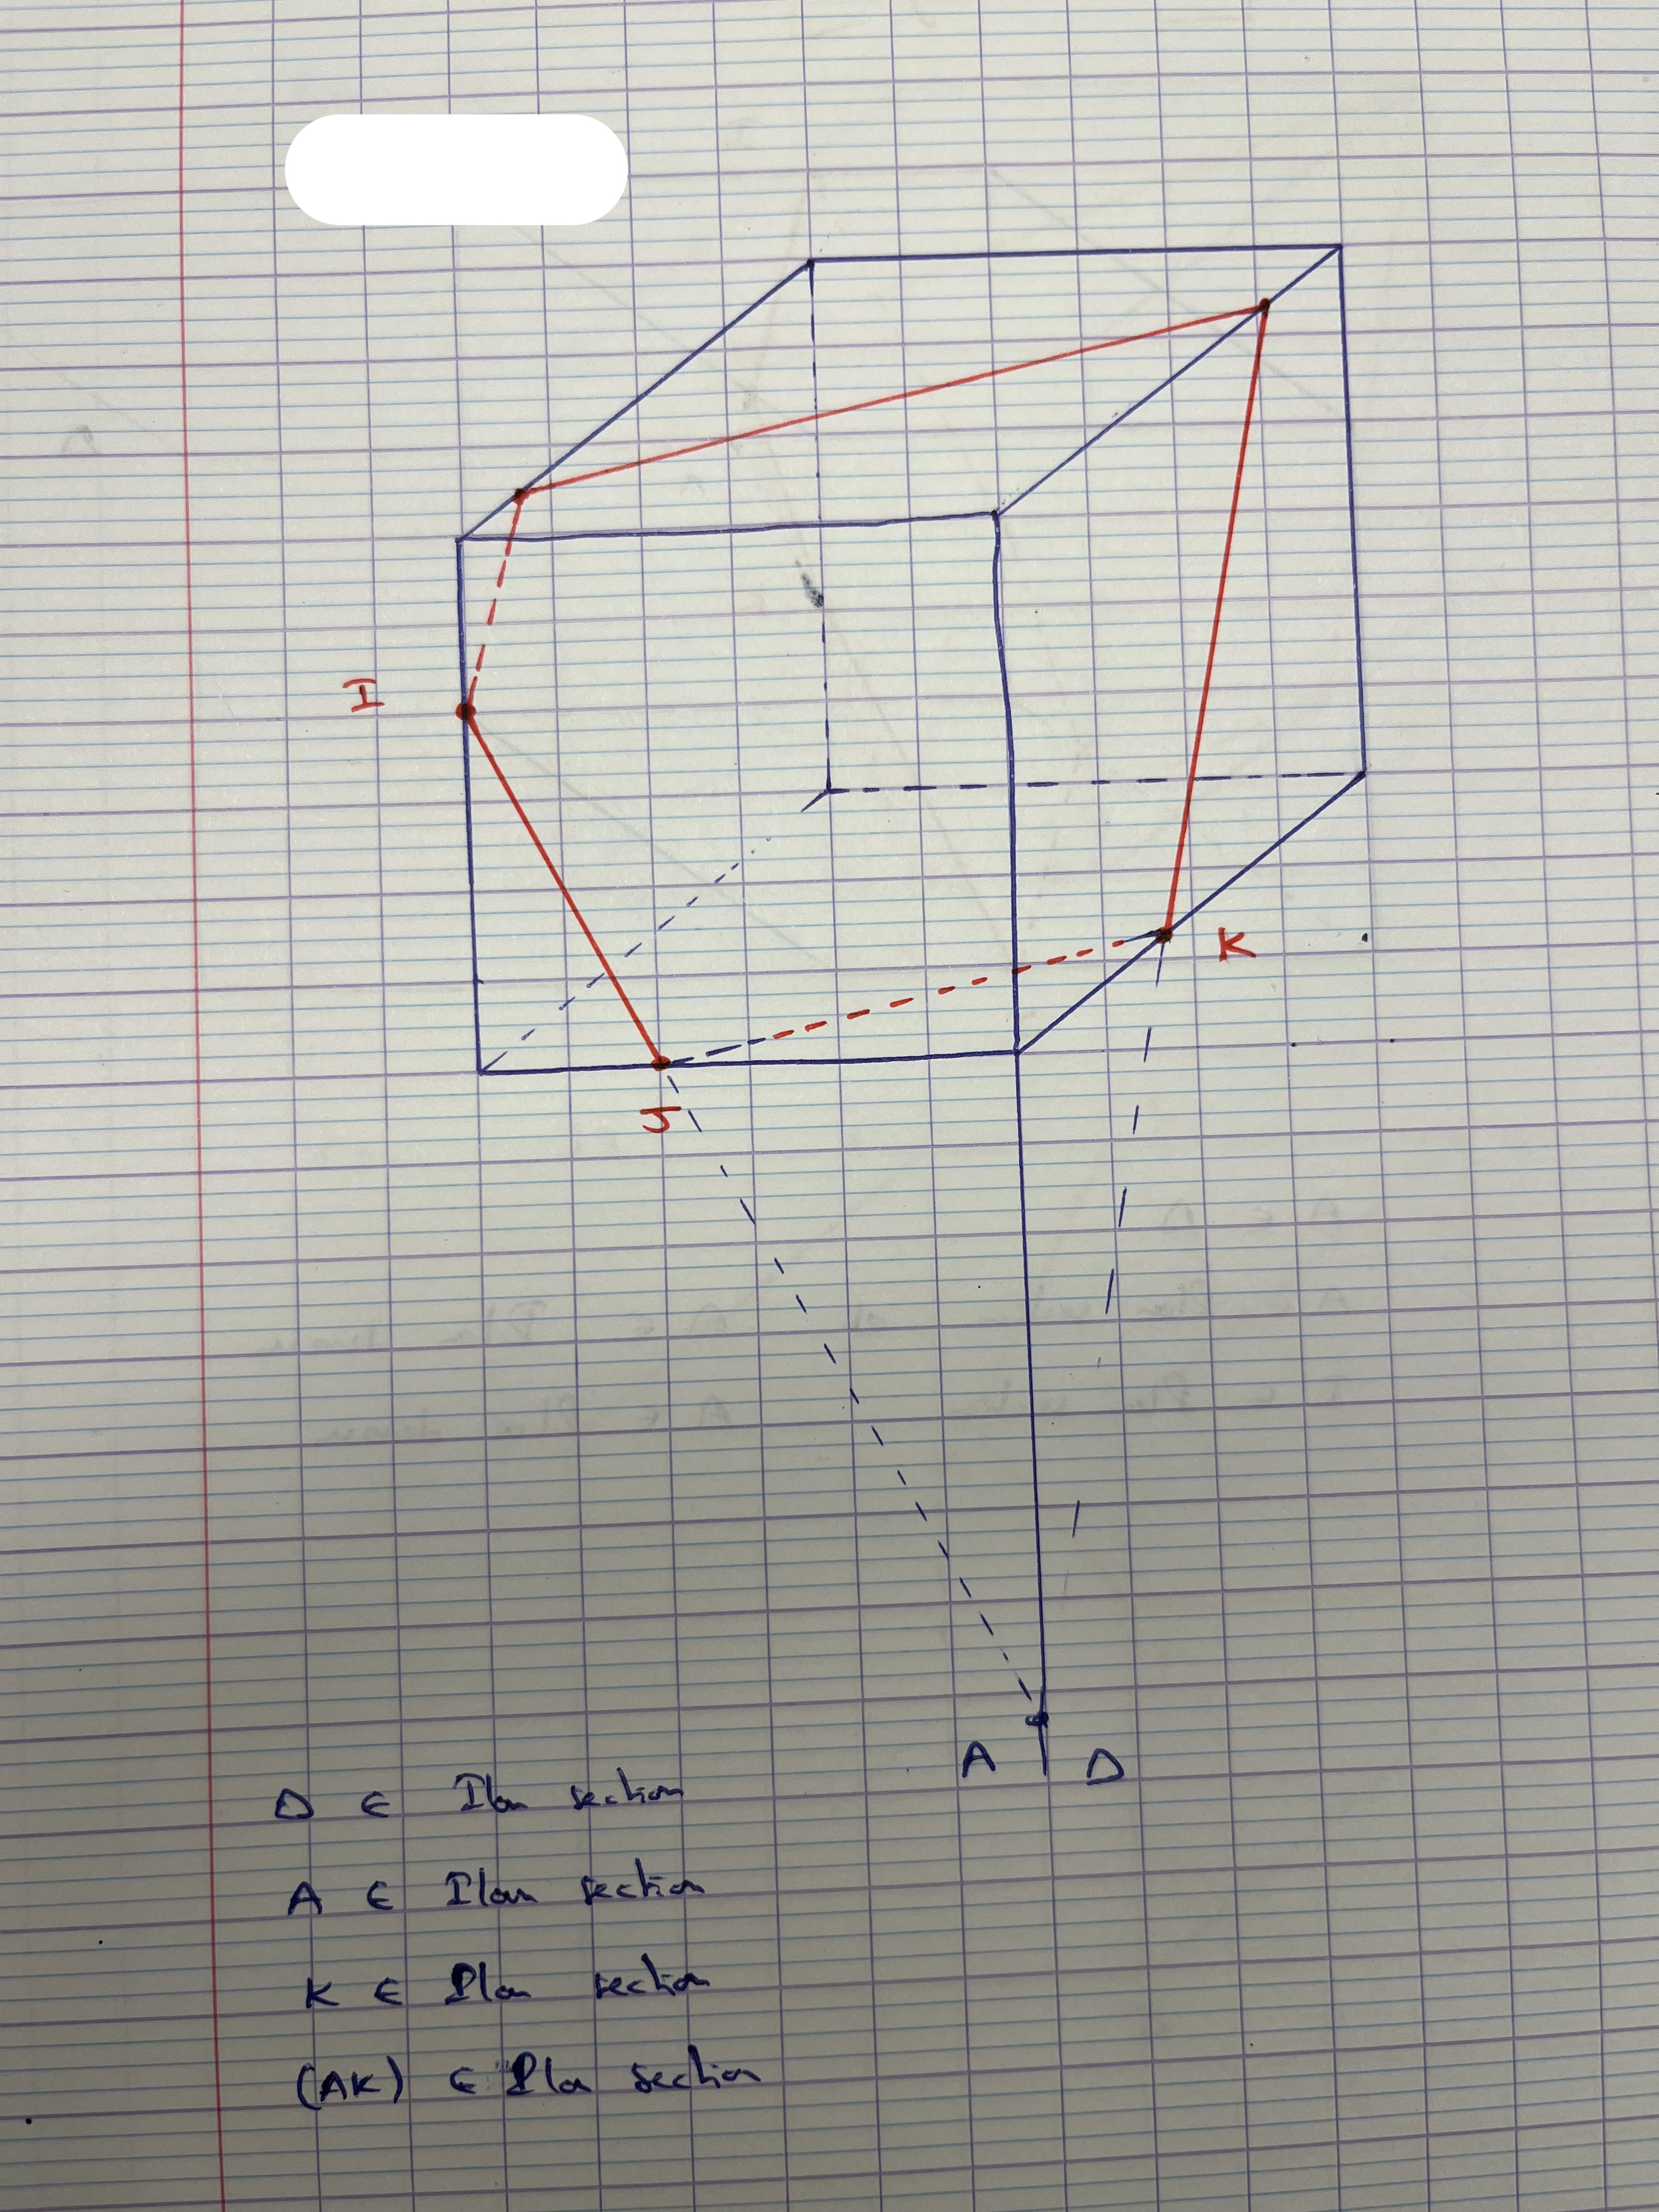 I
K
J
A D
D ∈ Plan section
A ∈ Plan section
K ∈ Plan section
(AK) ∈ Plan section